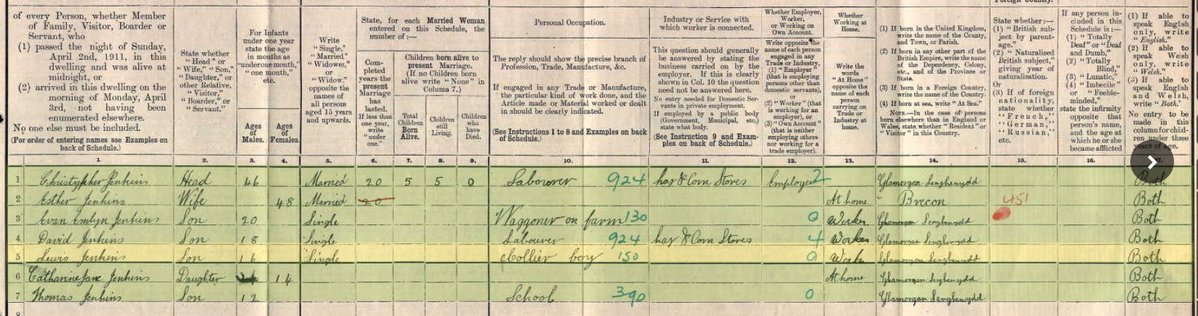 of every Person, whether Member of Family, Visitor, Boarder or Servant, who
(1) passed the night of Sunday, April 2nd, 1911, in this dwelling and was alive at midnight, or
(2) arrived in this dwelling on the morning of Monday, April 3rd, not having been enumerated elsewhere.
No one else must be included.
(For order of entering names see Examples on back of Schedule.)
State whether "Head" or "Wife," "Son," "Daughter," or other Relative, "Visitor," "Boarder," or "Servant."
For Infants under one year state the age in months as "under one month," "one month," etc.
Ages of Males.
Ages of Females.
Write "Single," "Married," "Widower," or "Widow," opposite the names of all persons aged 15 years and upwards.
State, for each Married Woman entered on this Schedule, the number of:—
Completed years the present Marriage has lasted. If less than one year, write "under one."
Children born alive to present Marriage. (If no Children born alive write "None" in Column 7.)
Total Children Born Alive.
Children still Living.
Children who have Died.
Personal Occupation.
The reply should show the precise branch of Profession, Trade, Manufacture, &c.
If engaged in any Trade or Manufacture, the particular kind of work done, and the Article made or Material worked or dealt in should be clearly indicated.
(See Instructions 1 to 8 and Examples on back of Schedule.)
Industry or Service with which worker is connected.
This question should generally be answered by stating the business carried on by the employer. If this is clearly shown in Col. 10 the question need not be answered here.
No entry needed for Domestic Servants in private employment. If employed by a public body (Government, Municipal, etc.) state what body.
(See Instruction 9 and Examples on back of Schedule.)
Whether Employer, Worker, or Working on Own Account.
Write opposite the name of each person engaged in any Trade or Industry, (1) "Employer" (that is employing persons other than domestic servants), or (2) "Worker" (that is working for an employer), or (3) "Own Account" (that is neither employing others nor working for a trade employer).
Whether Working at Home.
Write the words "At Home" opposite the name of each person carrying on Trade or Industry at home.
(1) If born in the United Kingdom, write the name of the County, and Town, or Parish.
(2) If born in any other part of the British Empire, write the name of the Dependency, Colony, etc., and of the Province or State.
(3) If born in a Foreign Country, write the name of the Country.
(4) If born at sea, write "At Sea."
NOTE.—In the case of persons born elsewhere than in England or Wales, state whether "Resident" or "Visitor" in this Country.
State whether:—
(1) "British subject by parentage."
(2) "Naturalised British subject," giving year of naturalisation.
(3) If of foreign nationality, state whether "French," "German," "Russian," etc.
If any person included in this Schedule is:—
(1) "Totally Deaf" or "Deaf and Dumb,"
(2) "Totally Blind,"
(3) "Lunatic,"
(4) "Imbecile" or "Feeble-minded,"
state the infirmity opposite that person's name, and the age at which he or she became afflicted
(1) If able to speak English only, write "English."
(2) If able to speak Welsh only, write "Welsh."
(3) If able to speak English and Welsh, write "Both."
No entry to be made in this column for children under three years of age.
1. 2. 3. 4. 5. 6. 7. 8. 9. 10. 11. 12. 13. 14. 15. 16.
1 Christopher Jenkins Head 46 Married 20 5 5 0 Labourer 924 hay & Corn Stores Employee 2 Glamorgan Senghenydd Both
2 Esther Jenkins Wife 48 Married 20 At home " Brecon 451 Both
3 Evan Emlyn Jenkins Son 20 Single Waggoner on farm 130 0 Worker Glamorgan Senghenydd Both
4 David Jenkins Son 18 Single Labourer 924 hay & Corn Stores 4 Worker Glamorgan Senghenydd Both
5 Lewis Jenkins Son 16 Single Collier boy 150 0 Glamorgan Senghenydd Both
6 Catharine Jane Jenkins Daughter 14 At home Glamorgan Senghenydd Both
7 Thomas Jenkins Son 12 School 390 0 Glamorgan Senghenydd Both